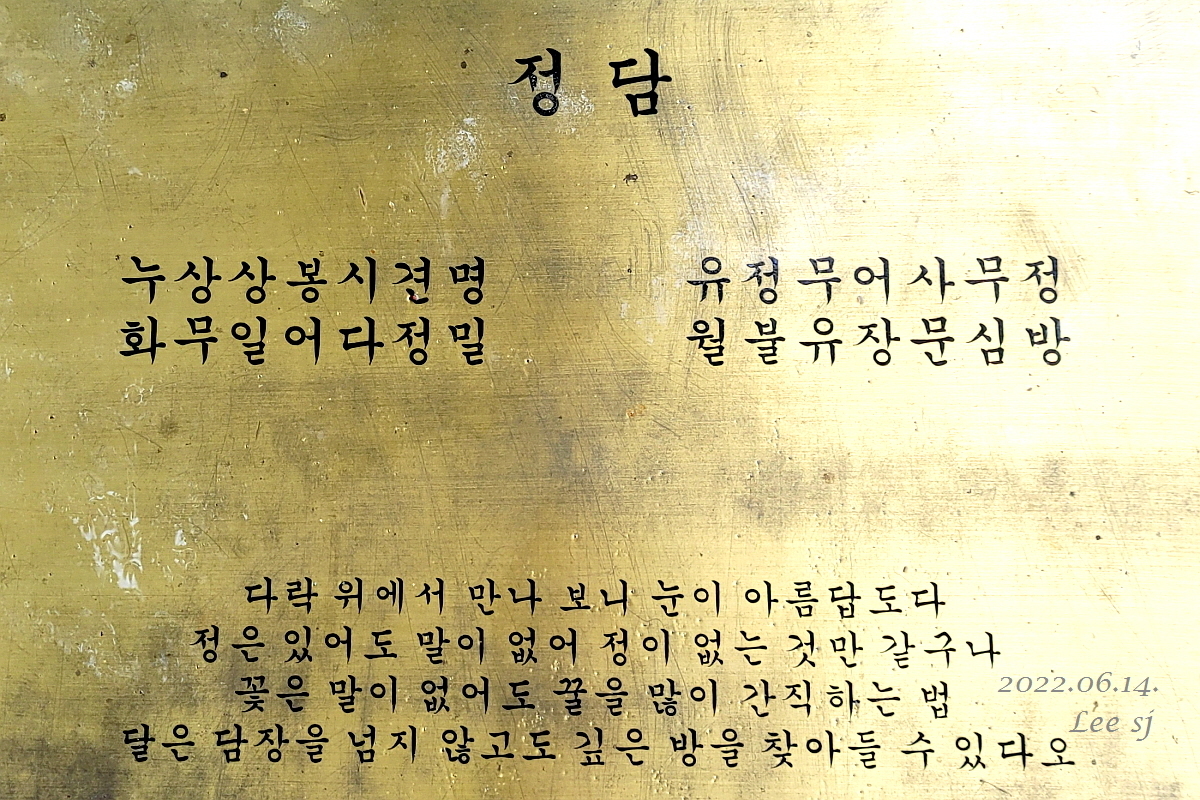 정담
누상상봉시견명 유정무어사무정
화무일어다정밀 월불유장문심방
다락 위에서 만나 보니 눈이 아름답도다
정은 있어도 말이 없어 정이 없는 것만 같구나
꽃은 말이 없어도 꿀을 많이 간직하는 법
달은 담장을 넘지 않고도 깊은 방을 찾아들 수 있다오
2022.06.14.
Lee sj